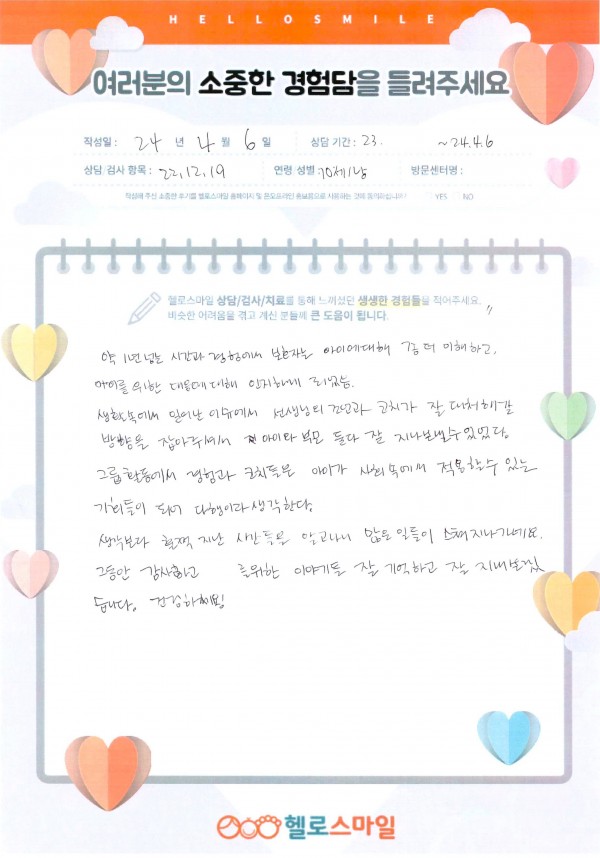 HELLOSMILE
여러분의 소중한 경험담을 들려주세요
작성일 : 24 년 4 월 6 일 상담 기간 : 23. ~24.4.6
상담 검사 항목 : 22.12.19 연령/성별 방문센터명 :
작성해 주신 소중한 후기를 헬로스마일 홈페이지 및 온오프라인 홍보용으로 사용하는 것에 동의하십니까? YES NO
헬로스마일 상담/검사/치료를 통해 느끼셨던 생생한 경험들을 적어주세요.
비슷한 어려움을 겪고 계신 분들께 큰 도움이 됩니다.
약 1년 넘는 시간과 경험에서 보호자는 아이에 대해 좀 더 이해하고,
아이를 위한 대응에 대해 인지하게 되었음.
생활 속에서 일어난 이슈에서 선생님의 조언과 코치가 잘 대처해갈
방향을 잡아주셔서 아이와 부모 둘다 잘 지나보낼 수 있었다.
그룹활동에서 경험과 코치들은 아이가 사회 속에서 적용할 수 있는
기회들이 되어 다행이라 생각한다.
생각보다 훌쩍 지난 시간들을 알고나니 많은 일들이 스쳐 지나가네요.
그동안 감사하고 를 위한 이야기들 잘 기억하고 잘 지내보겠
습니다. 건강하세요!
헬로스마일